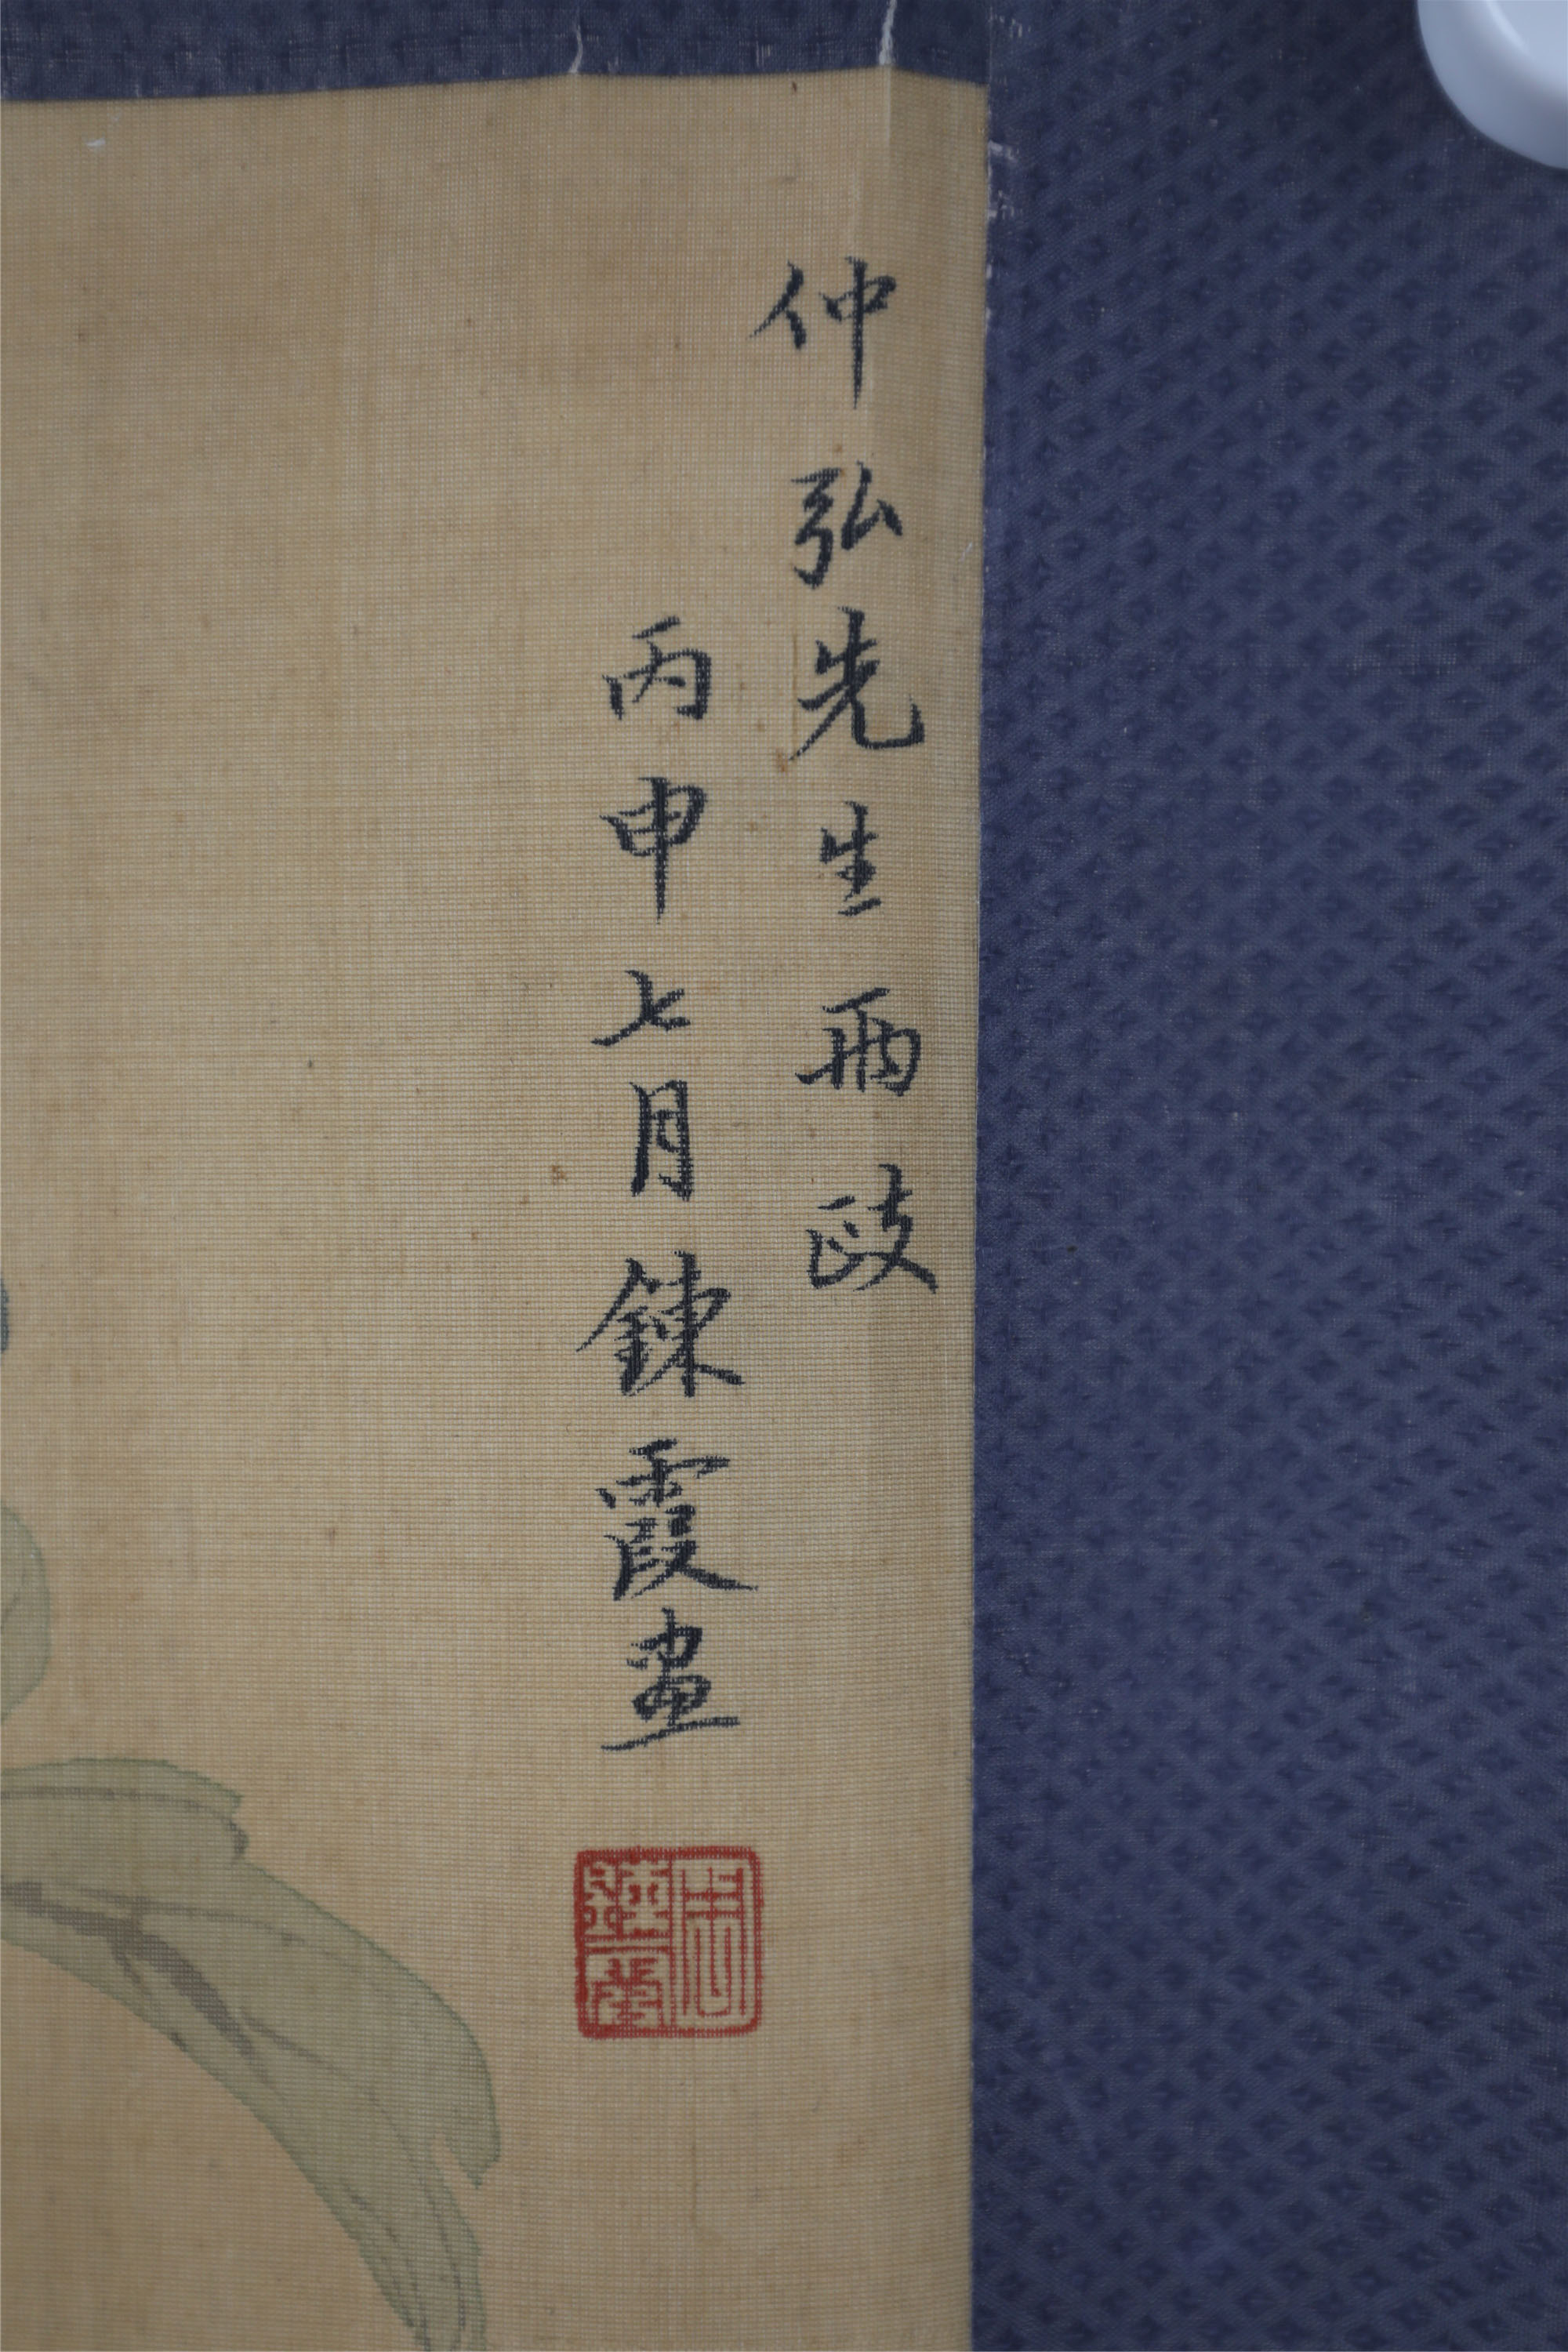 仲弘先生政
丙申七月鍊霞畫